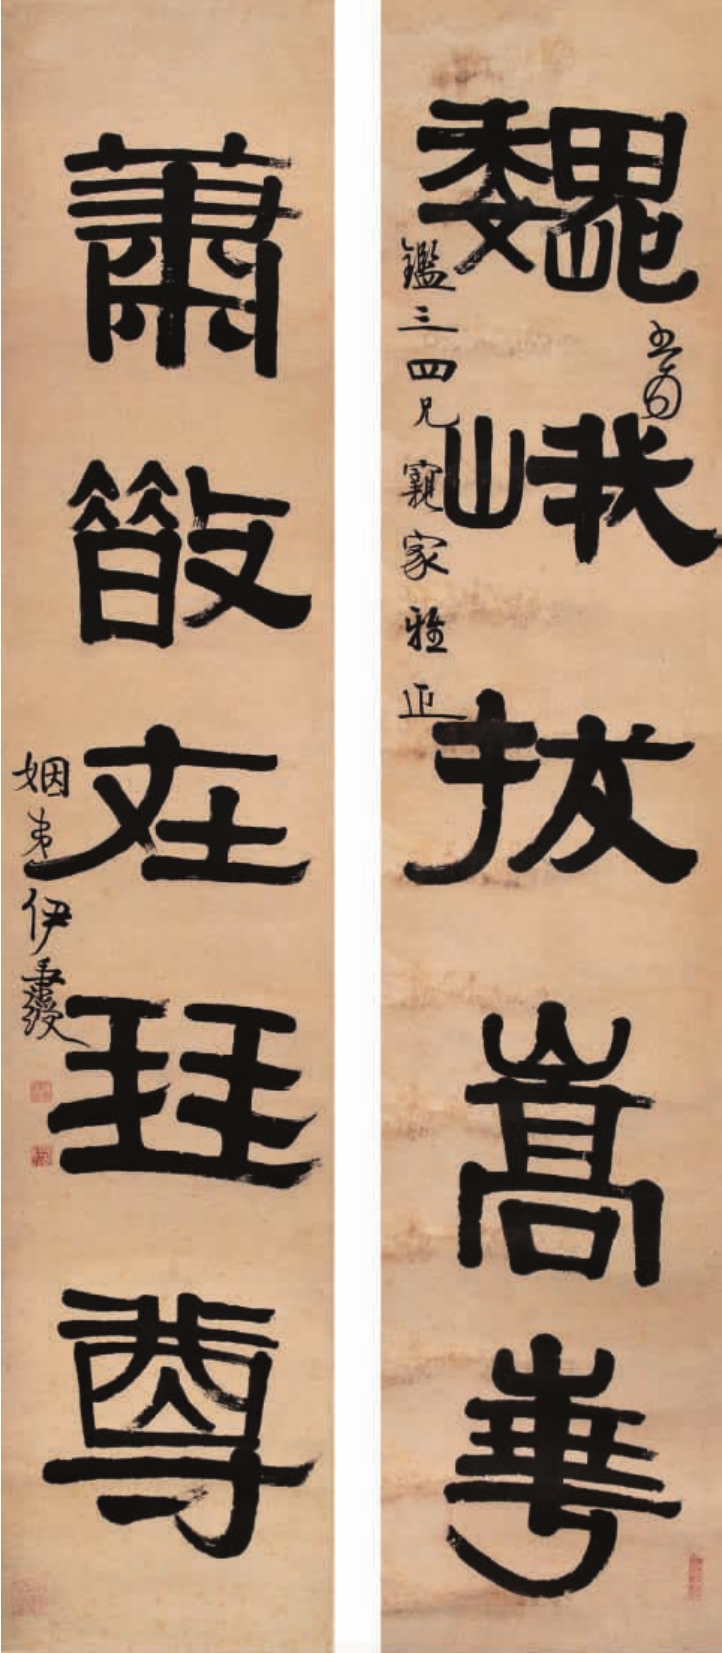 巍峨拔嵩崋
書為
鑑三四兄寴家雅正
蕭散在琴尊
姻弟伊秉綬